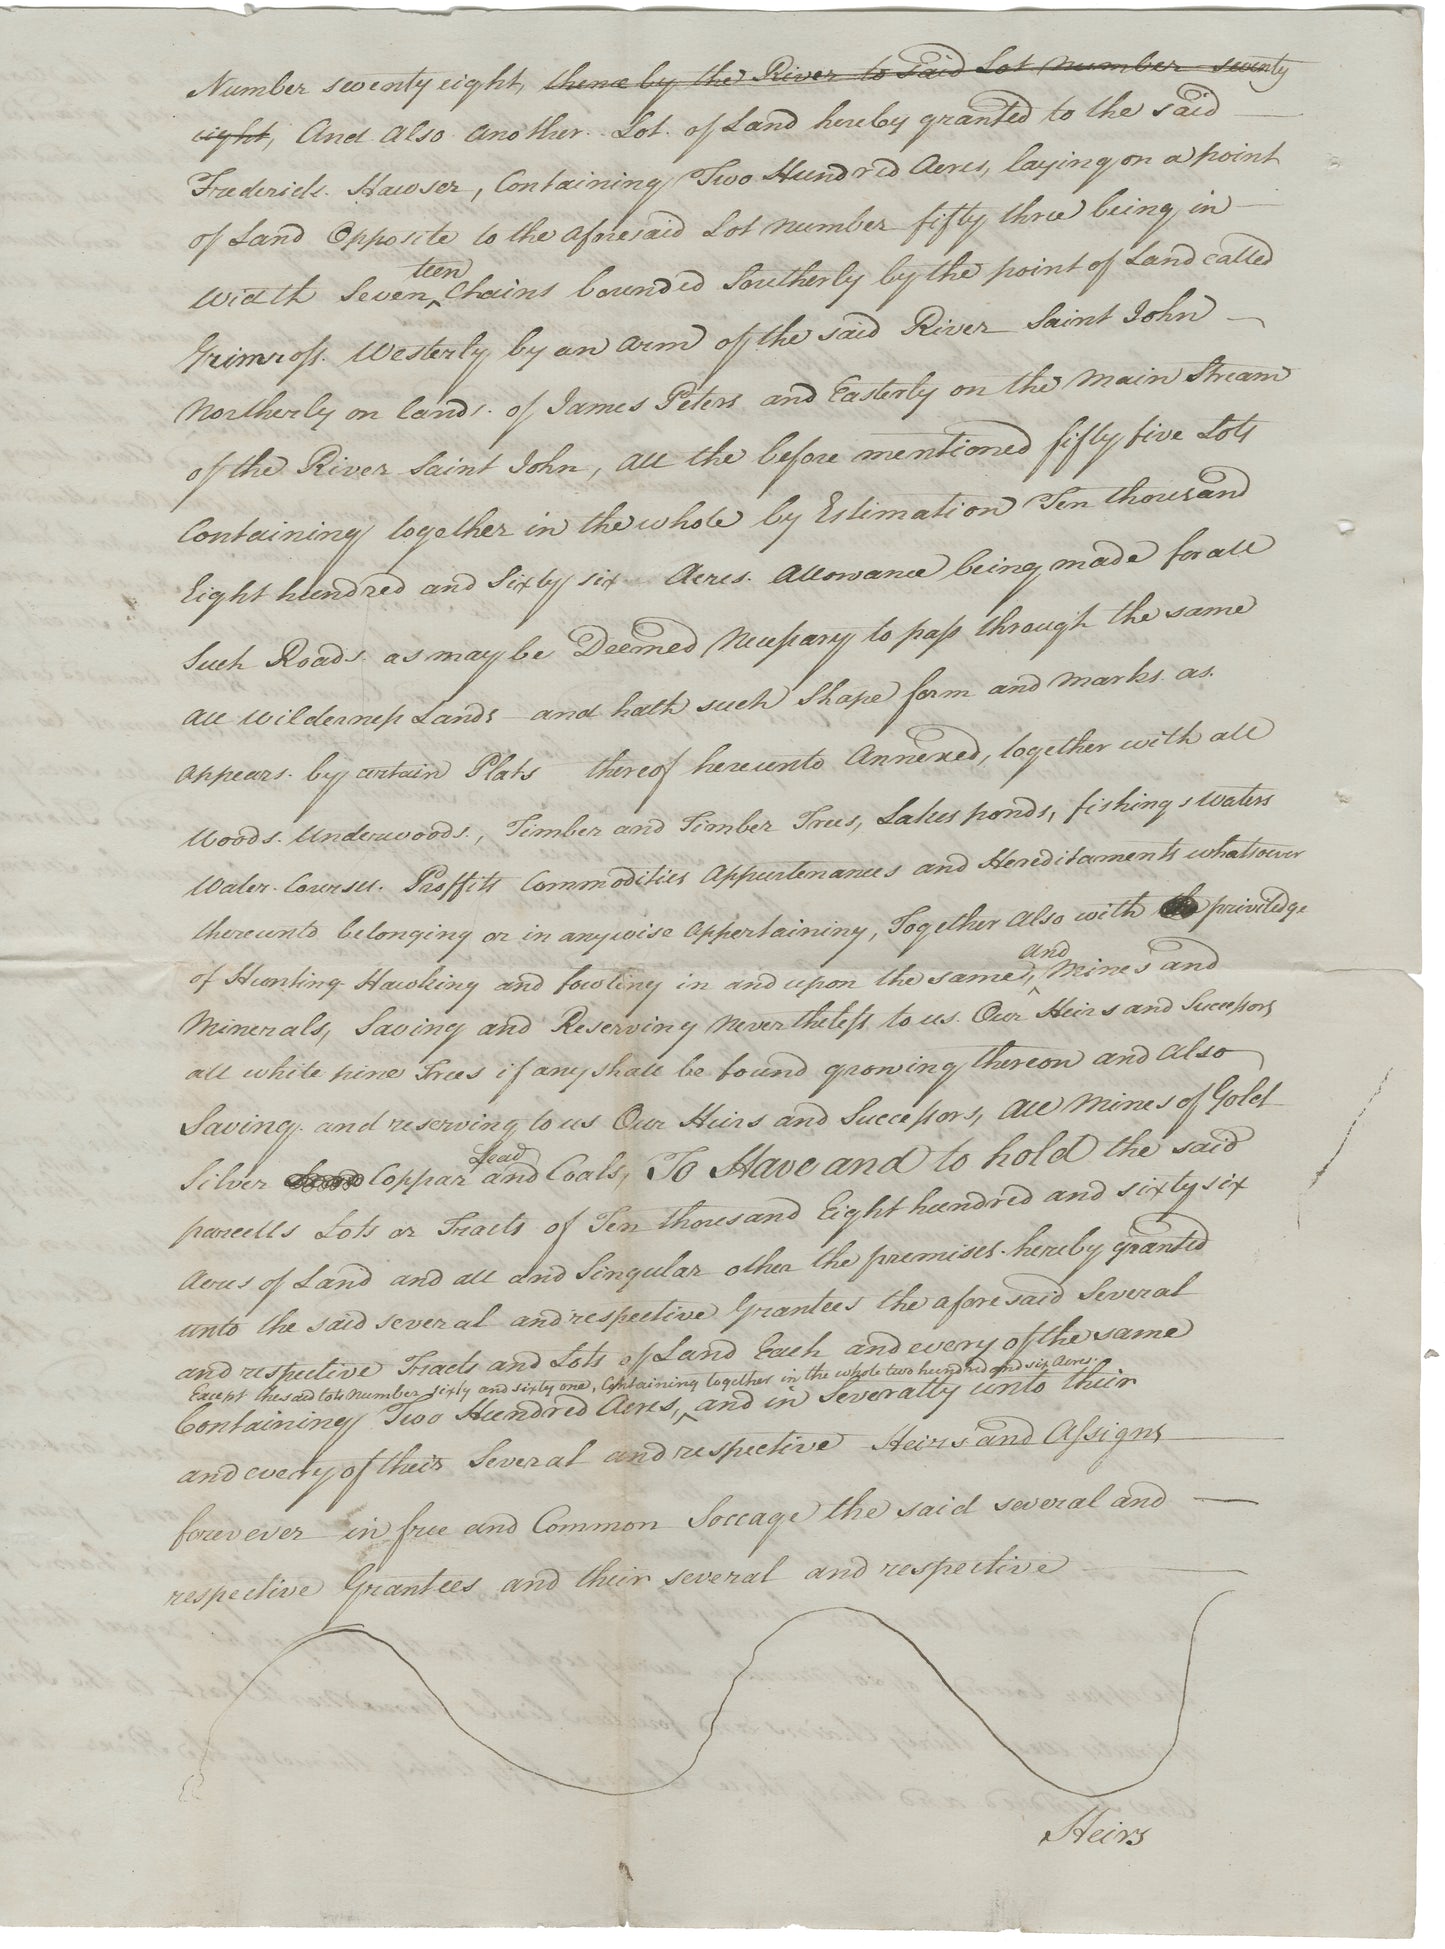 Number seventy eight, thence by the River to said Lot number seventy
eight, And Also Another Lot of Land hereby granted to the said
Frederick Hawser, Containing Two Hundred Acres, laying on a point
of Land Opposite to the aforesaid Lot number fifty three being in
width Seventeen Chains bounded Southerly by the point of Land called
Grimross Westerly by an arm of the said River Saint John
Northerly on lands of James Peters and Easterly on the Main Stream
of the River Saint John, all the before mentioned fifty five Lots
Containing together in the whole by Estimation Ten thousand
Eight hundred and Sixty six Acres. Allowance being made for all
Such Roads as may be Deemed Necessary to pass through the same
All Wilderness Lands and hath such Shape form and marks as
appears by certain Plats thereof hereunto Annexed, together with all
Woods Underwoods, Timber and Timber Trees, Lakes ponds, fishings waters
Water Courses Proffits Commodities Appurtenances and Hereditaments whatsoever
thereunto belonging or in anywise Appertaininy, Together Also with priviledge
of Hunting Hawking and fowling in and upon the same, and Mines and
Minerals, Saving and Reserving nevertheless to us Our Heirs and Successors
all white pine Trees if any shall be found growing thereon and Also
Saving and reserving to us Our Heirs and Successors, All Mines of Gold
Silver Coppar Lead and Coals, To Have and to hold the said
parcells Lots or Tracts of Ten thousand Eight hundred and sixty six
Acres of Land and all and Singular other the premises hereby granted
unto the said several and respective Grantees the aforesaid Several
and respective Tracts and Lots of Land Each and every of the same
Except the said lots Number sixty and sixty one, Containing together in the whole two hundred and six Acres.
Containing Two Hundred Acres, and in Severalty unto their
and every of their Several and respective Heirs and Assigns
forevever in free and Common Soccage the said several and
respective Grantees and their several and respective
Heirs